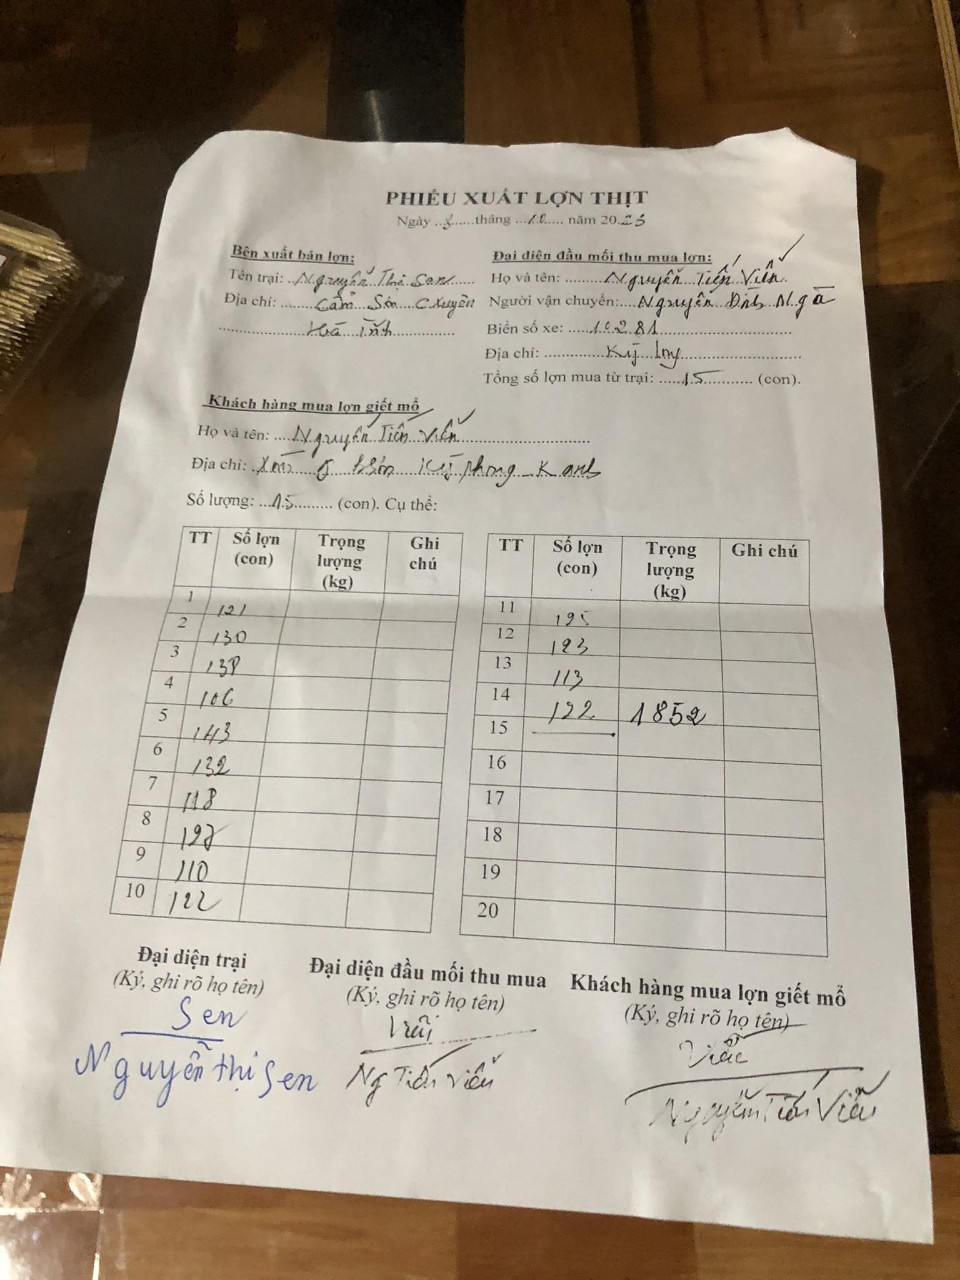 PHIẾU XUẤT LỢN THỊT
Ngày ..8......tháng ...10..... năm 20.23
Bên xuất bán lợn:
Tên trại: Nguyễn Thị Sen
Địa chỉ: Cẩm Sơn Cxuyên
Hà Tĩnh
Đại diện đầu mối thu mua lợn:
Họ và tên: Nguyễn Tiến Viễn
Người vận chuyển: Nguyễn Đình Ngà
Biển số xe: 10281
Địa chỉ: Kỳ
Tổng số lợn mua từ trại: 15 (con).
Khách hàng mua lợn giết mổ
Họ và tên: Nguyễn Tiến Viễn
Địa chỉ: Kỳ phong - K anh
Số lượng: 15 (con). Cụ thể:
TT Số lợn (con) Trọng lượng (kg) Ghi chú
1 121
2 130
3 138
4 106
5 143
6 132
7 118
8
9 110
10 122
TT Số lợn (con) Trọng lượng (kg) Ghi chú
11 125
12 123
13 113
14 122 1852
15
16
17
18
19
20
Đại diện trại
(Ký, ghi rõ họ tên)
Sen
Nguyễn thị Sen
Đại diện đầu mối thu mua
(Ký, ghi rõ họ tên)
Ng Tiến Viễn
Khách hàng mua lợn giết mổ
(Ký, ghi rõ họ tên)
Nguyễn Tiến Viễn